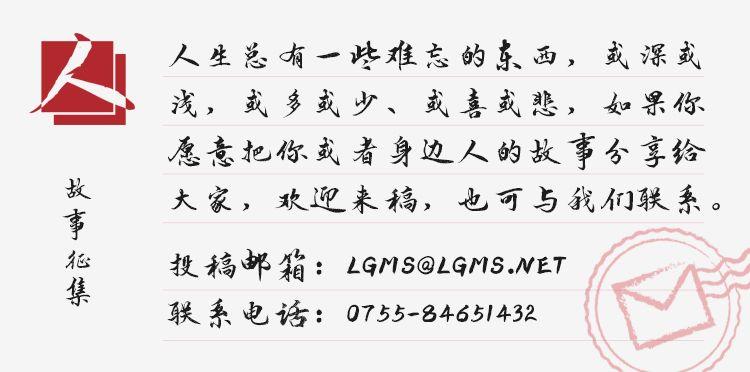 人
故事征集
人生总有一些难忘的东西，或深或
浅，或多或少、或喜或悲，如果你
愿意把你或者身边人的故事分享给
大家，欢迎来稿，也可与我们联系。
投稿邮箱：LGMS@LGMS.NET
联系电话：0755-84651432